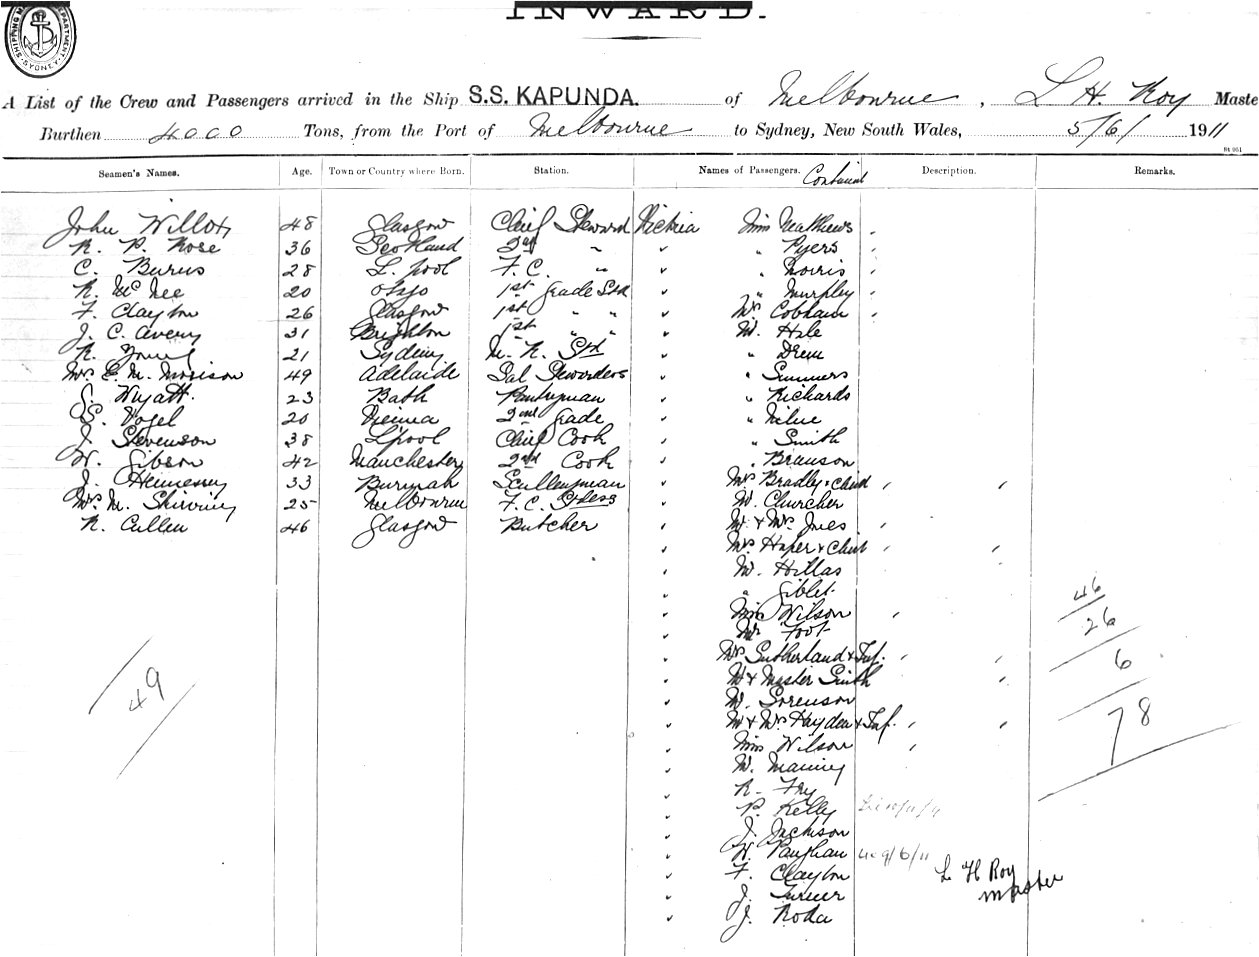 SHIPPING DEPARTMENT SYDNEY
INWARD.
A List of the Crew and Passengers arrived in the Ship S.S. KAPUNDA. of Melbourne, L H. Roy Maste
Burthen 4000 Tons, from the Port of Melbourne to Sydney, New South Wales, 5/6/ 1911
St 951
Seamen's Names. Age. Town or Country where Born. Station. Names of Passengers. Description. Remarks.
John Willox 48 Glasgow Chief Steward Miss Mathews
R. P. Rose 36 Scotland 2nd " " Pyers
C. Burns 28 L. pool F. C. " " Norris
R. McNee 20 1st Grade Std " Murphy
F. Clayton 26 Glasgow 1st " " Mr Cobham
J. C. Avery 31 Brighton 1st " " M. Hale
R. Young 21 Sydney M. R. Std " Drew
Mrs E. M. Morison 49 Adelaide Sal Stewardess " Summers
S. Wyatt. 23 Bath Pantryman " Richards
S. Vogel 20 Vienna 2nd Grade " Milne
J. Stevenson 38 L'pool Chief Cook " Smith
W. Gibson 42 Manchester 2nd Cook " Branson
J. Hennessy 33 Burmah Sculleryman Mrs Bradley & Child
Mrs M. 25 Melbourne F. C. Stdess M. Churcher
R. Cullen 46 Glasgow Butcher M. & Mrs
Mrs Haper & Child
M. Hillas
" Giblet
Miss Wilson
Mr Foot
Mrs Sutherland & Inf.
M & Master Smith
M. Sorenson
M & Mrs Hayden & Inf.
Miss Wilson
M. Manning
R. Fry
P. Kelly
J. Jackson
W. Vaughan 9/6/11
F. Clayton
J. Turner
J. Roda
49
46
26
6
78
L H Roy
Master